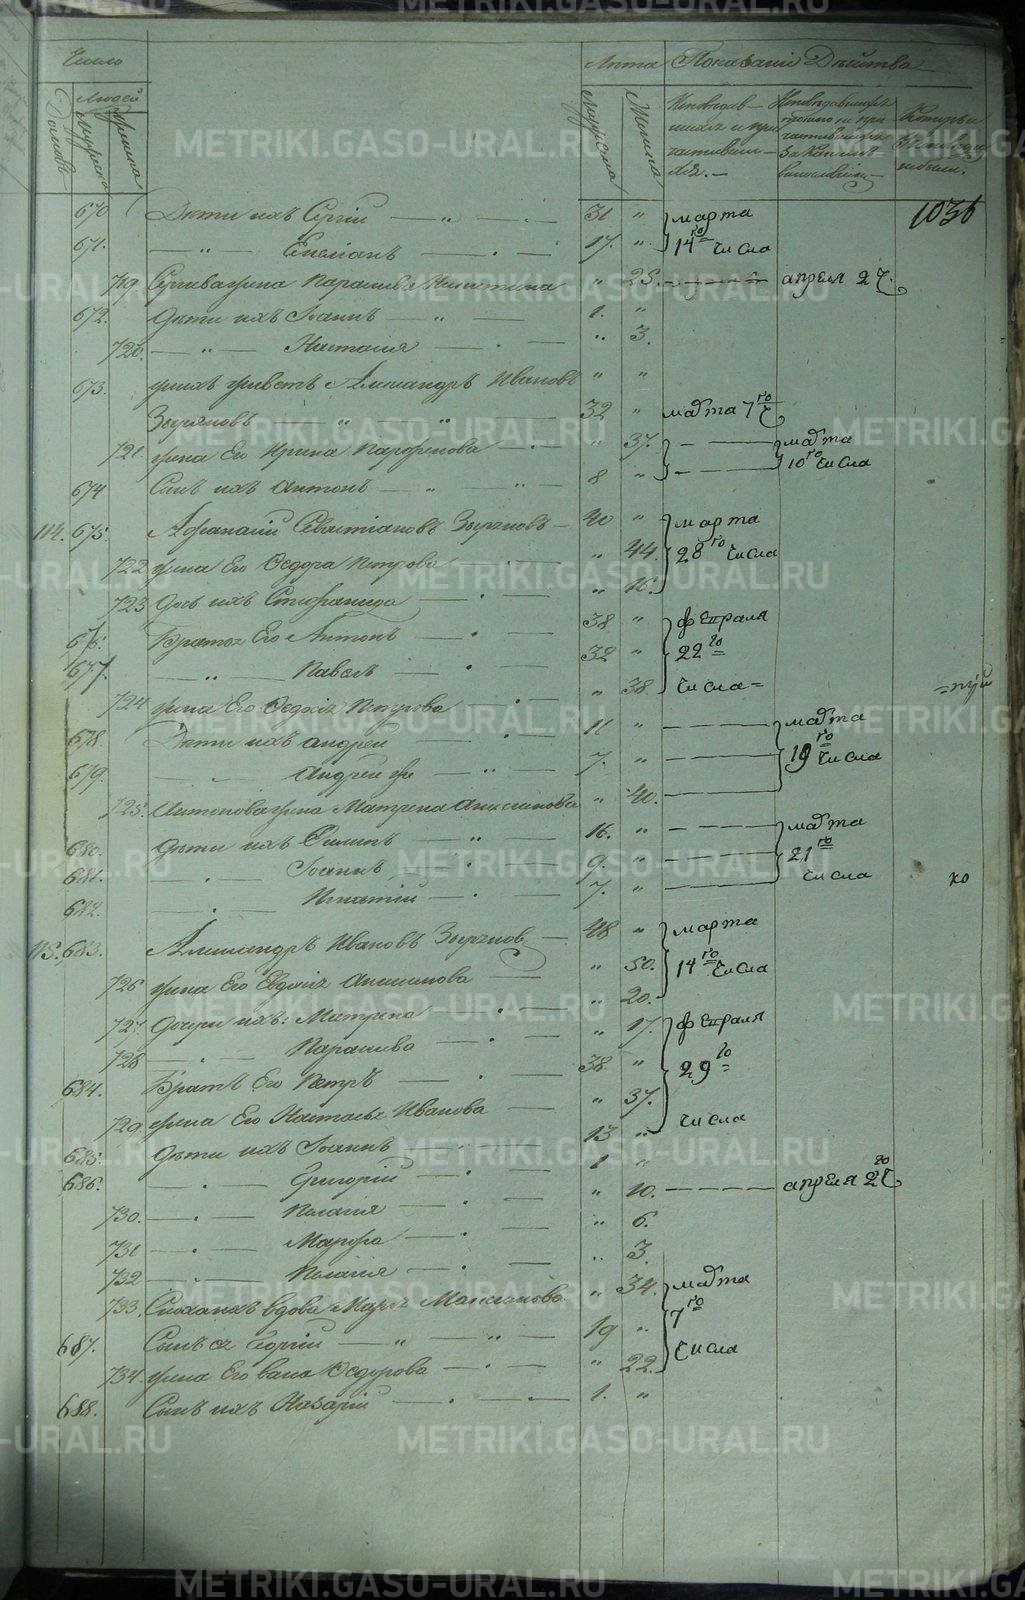 METRIKI.GASO-URAL.RU
Число Лѣта Показанiи Дѣйства
Людей
Домовъ Мужеска Женска Мужеска Женска
1036
670 Дѣти ихъ Сергiй — „ — 31 „ марта
671. — „ — Емелiанъ — 17. „ 14го числа
719 Сергiева жена Параскева Никитина „ 25. апреля 27.
672. дѣти ихъ Iоаннъ — „ — 1. „
720. — „ — Наталiя — „ 3.
673. у нихъ живетъ Александръ Ивановъ „ „
Зыряновъ — „ „ — 32 „ марта 7го
721. жена Его Ирина Парфенова — „ 37. марта
674 Сынъ ихъ Антонъ — „ „ — 8 „ 10го числа
114. 675. Афанасiй Севастiановъ Зыряновъ — 40 „ марта
722 жена Его Федора Петрова „ 44. 28го числа
723 дочь ихъ Стефанида — „ 16.
676. Братья Его Антонъ — 38 „ февраля
677. — „ — Павелъ — 32 „ 22го
724 жена Его Федосiя Петрова „ 38. числа
678. Дѣти ихъ Андрей — 11 „ марта
679. Андрей же — „ — 7. „ 19го числа
725. Антонова жена Матрена Анисимова „ 40.
680. дѣти ихъ Филипъ — „ — 16. „ марта
681. Iоаннъ — 9. „ 21го
682. Игнатiй — 7. „ числа
115. 683. Александръ Ивановъ Зыряновъ — 48 „ марта
726 жена Его Евдокiя Анисимова „ 50. 14го числа
727. дочери ихъ: Матрена — „ 20.
728 Параскева — „ 17. февраля
684. Братъ Его Петръ — 38 „ 29го
729. жена Его Наталья Иванова — „ 37. числа
685. дѣти ихъ Iоаннъ 13 „
686. Григорiй — 1 „
730. Пелагiя — „ 10. апреля 27го
731 Марфа — „ 6.
732 Пелагiя — „ 3.
733. Сноха ихъ вдова Марья Максимова „ 34. марта
687. Сынъ ея Георгiй — „ „ — 19 „ 7го
734. жена Его Федорова — „ 22. числа
688. Сынъ ихъ Назарiй — 1. „